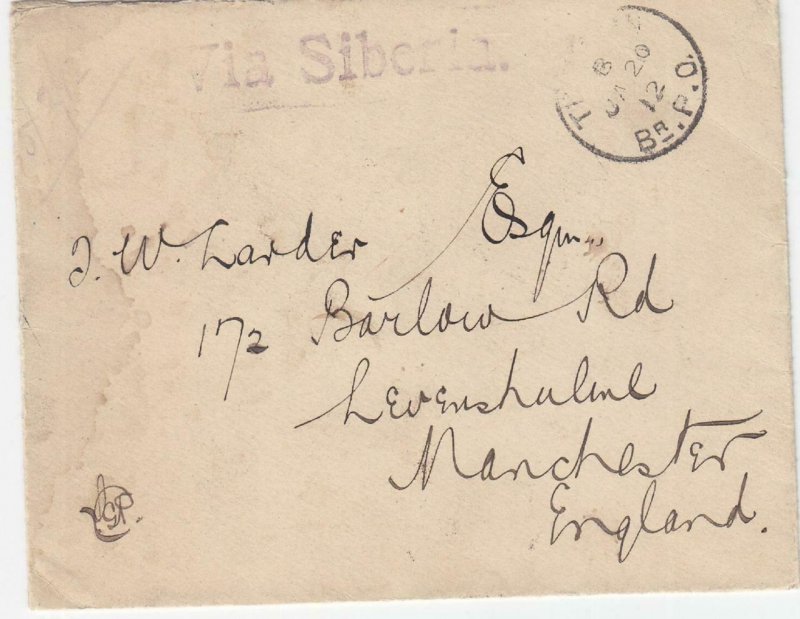 Via Siberia.
B
JA 20
12
BR. P. O.
J. W. Larder Esqre.
172 Barlow Rd
Levenshulme
Manchester
England.